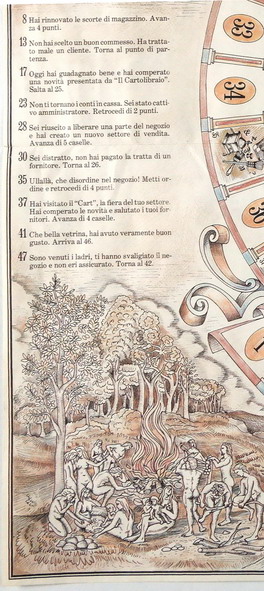 8 Hai rinnovato le scorte di magazzino. Avan-
za 4 punti.
13 Non hai scelto un buon commesso. Ha tratta-
to male un cliente. Torna al punto di par-
tenza.
17 Oggi hai guadagnato bene e hai comperato
una novità presentata da "Il Cartolibraio".
Salta al 25.
23 Non ti tornano i conti in cassa. Sei stato catti-
vo amministratore. Retrocedi di 2 punti.
28 Sei riuscito a liberare una parte del negozio
e hai creato un nuovo settore di vendita.
Avanza di 5 caselle.
30 Sei distratto, non hai pagato la tratta di un
fornitore. Torna al 26.
35 Ullallà, che disordine nel negozio! Metti or-
dine e retrocedi di 4 punti.
37 Hai visitato il "Cart", la fiera del tuo settore.
Hai comperato le novità e salutato i tuoi for-
nitori. Avanza di 4 caselle.
41 Che bella vetrina, hai avuto veramente buon
gusto. Arriva al 46.
47 Sono venuti i ladri, ti hanno svaligiato il ne-
gozio e non eri assicurato. Torna al 42.
33
34
1